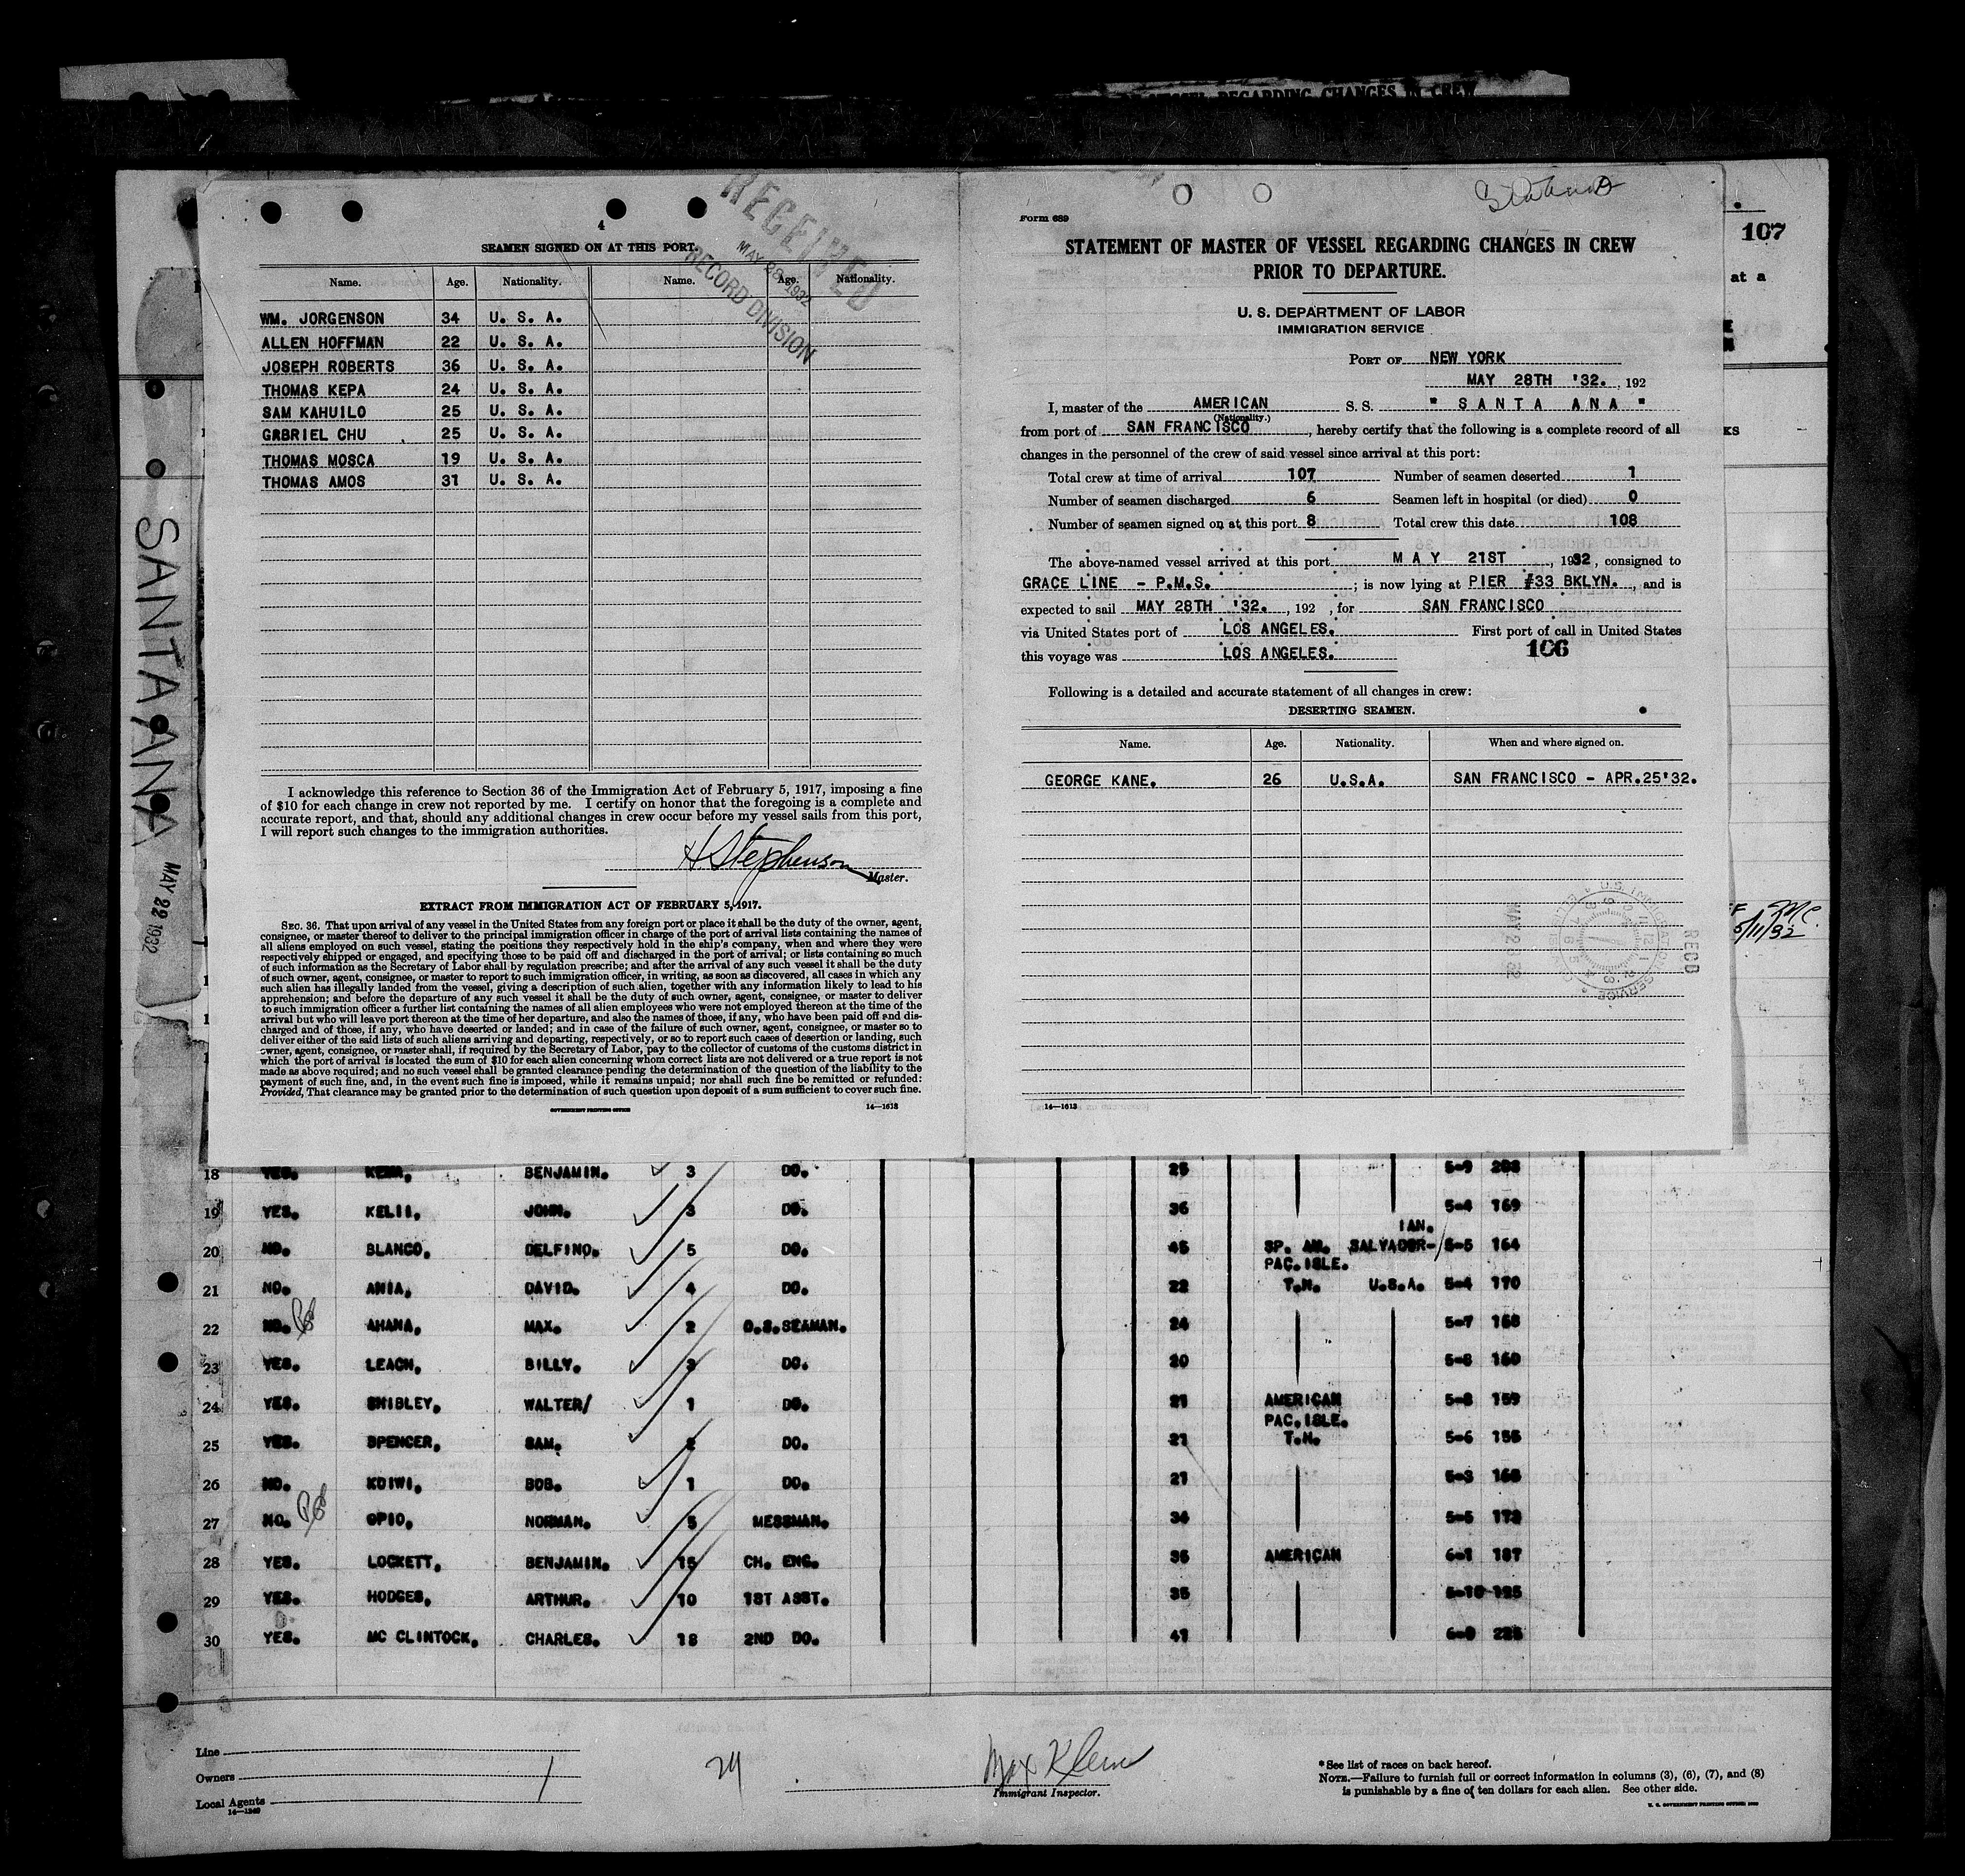 REGARDING CHANGES IN CREW
107
at a
KS
SANTA ANA
MAY 22 1932
4
RECEIVED
MAY 28 1932
RECORD DIVISION
SEAMEN SIGNED ON AT THIS PORT.
Name. Age. Nationality. Name. Age. Nationality.
WM. JORGENSON 34 U. S. A.
ALLEN HOFFMAN 22 U. S. A.
JOSEPH ROBERTS 36 U. S. A.
THOMAS KEPA 24 U. S. A.
SAM KAHUILO 25 U. S. A.
GABRIEL CHU 25 U. S. A.
THOMAS MOSCA 19 U. S. A.
THOMAS AMOS 31 U. S. A.
I acknowledge this reference to Section 36 of the Immigration Act of February 5, 1917, imposing a fine
of $10 for each change in crew not reported by me. I certify on honor that the foregoing is a complete and
accurate report, and that, should any additional changes in crew occur before my vessel sails from this port,
I will report such changes to the immigration authorities.
H Stephenson
Master.
EXTRACT FROM IMMIGRATION ACT OF FEBRUARY 5, 1917.
SEC. 36. That upon arrival of any vessel in the United States from any foreign port or place it shall be the duty of the owner, agent,
consignee, or master thereof to deliver to the principal immigration officer in charge of the port of arrival lists containing the names of
all aliens employed on such vessel, stating the positions they respectively hold in the ship's company, when and where they were
respectively shipped or engaged, and specifying those to be paid off and discharged in the port of arrival; or lists containing so much
of such information as the Secretary of Labor shall by regulation prescribe; and after the arrival of any such vessel it shall be the duty
of such owner, agent, consignee, or master to report to such immigration officer, in writing, as soon as discovered, all cases in which any
such alien has illegally landed from the vessel, giving a description of such alien, together with any information likely to lead to his
apprehension; and before the departure of any such vessel it shall be the duty of such owner, agent, consignee, or master to deliver
to such immigration officer a further list containing the names of all alien employees who were not employed thereon at the time of the
arrival but who will leave port thereon at the time of her departure, and also the names of those, if any, who have been paid off and dis-
charged and of those, if any, who have deserted or landed; and in case of the failure of such owner, agent, consignee, or master so to
deliver either of the said lists of such aliens arriving and departing, respectively, or so to report such cases of desertion or landing, such
owner, agent, consignee, or master shall, if required by the Secretary of Labor, pay to the collector of customs of the customs district in
which the port of arrival is located the sum of $10 for each alien concerning whom correct lists are not delivered or a true report is not
made as above required; and no such vessel shall be granted clearance pending the determination of the question of the liability to the
payment of such fine, and, in the event such fine is imposed, while it remains unpaid; nor shall such fine be remitted or refunded:
Provided, That clearance may be granted prior to the determination of such question upon deposit of a sum sufficient to cover such fine.
GOVERNMENT PRINTING OFFICE 14—1613
Form 689
STATEMENT OF MASTER OF VESSEL REGARDING CHANGES IN CREW
PRIOR TO DEPARTURE.
U. S. DEPARTMENT OF LABOR
IMMIGRATION SERVICE
PORT OF NEW YORK
MAY 28TH '32. , 192
I, master of the AMERICAN S. S. " SANTA ANA "
(Nationality.)
from port of SAN FRANCISCO , hereby certify that the following is a complete record of all
changes in the personnel of the crew of said vessel since arrival at this port:
Total crew at time of arrival 107 Number of seamen deserted 1
Number of seamen discharged 6 Seamen left in hospital (or died) 0
Number of seamen signed on at this port 8 Total crew this date 108
The above-named vessel arrived at this port MAY 21ST , 1932 , consigned to
GRACE LINE - P.M.S. ; is now lying at PIER #33 BKLYN. , and is
expected to sail MAY 28TH '32. , 192 , for SAN FRANCISCO
via United States port of LOS ANGELES. First port of call in United States
this voyage was LOS ANGELES.
106
Following is a detailed and accurate statement of all changes in crew:
DESERTING SEAMEN.
Name. Age. Nationality. When and where signed on.
GEORGE KANE. 26 U.S.A. SAN FRANCISCO - APR.25'32.
REC'D
14—1613
5/11/32
18 YES. BENJAMIN. 3 DO. 25 5-9 208
19 YES. KELII, JOHN. 3 DO. 36 5-4 169
20 NO. BLANCO, DELFINO. 5 DO. 45 SP. AM. SALVADOR- IAN. 5-5 164
21 NO. ANIA, DAVID. 4 DO. 22 PAC. ISLE. T.H. U.S.A. 5-4 170
22 NO. AHANA, MAX. 2 O.S.SEAMAN. 24 5-7 168
23 YES. LEACH, BILLY. 3 DO. 20 5-8 160
24 YES. SHIBLEY, WALTER/ 1 DO. 21 AMERICAN 5-8 159
25 YES. SPENCER, SAM. 2 DO. 21 PAC. ISLE. T.H. 5-6 155
26 NO. KOIWI, BOB. 1 DO. 21 5-3 165
27 NO. OPIO, NORMAN. 5 MESSMAN. 34 5-5 173
28 YES. LOCKETT, BENJAMIN. 15 CH. ENG. 35 AMERICAN 6-1 187
29 YES. HODGES, ARTHUR. 10 1ST ASST. 35 5-10 195
30 YES. MC CLINTOCK, CHARLES. 18 2ND DO. 41 6-0 225
Line
Owners
Local Agents
14—1240
1
24
Max Klein
Immigrant Inspector.
*See list of races on back hereof.
NOTE.—Failure to furnish full or correct information in columns (3), (6), (7), and (8)
is punishable by a fine of ten dollars for each alien. See other side.
U. S. GOVERNMENT PRINTING OFFICE